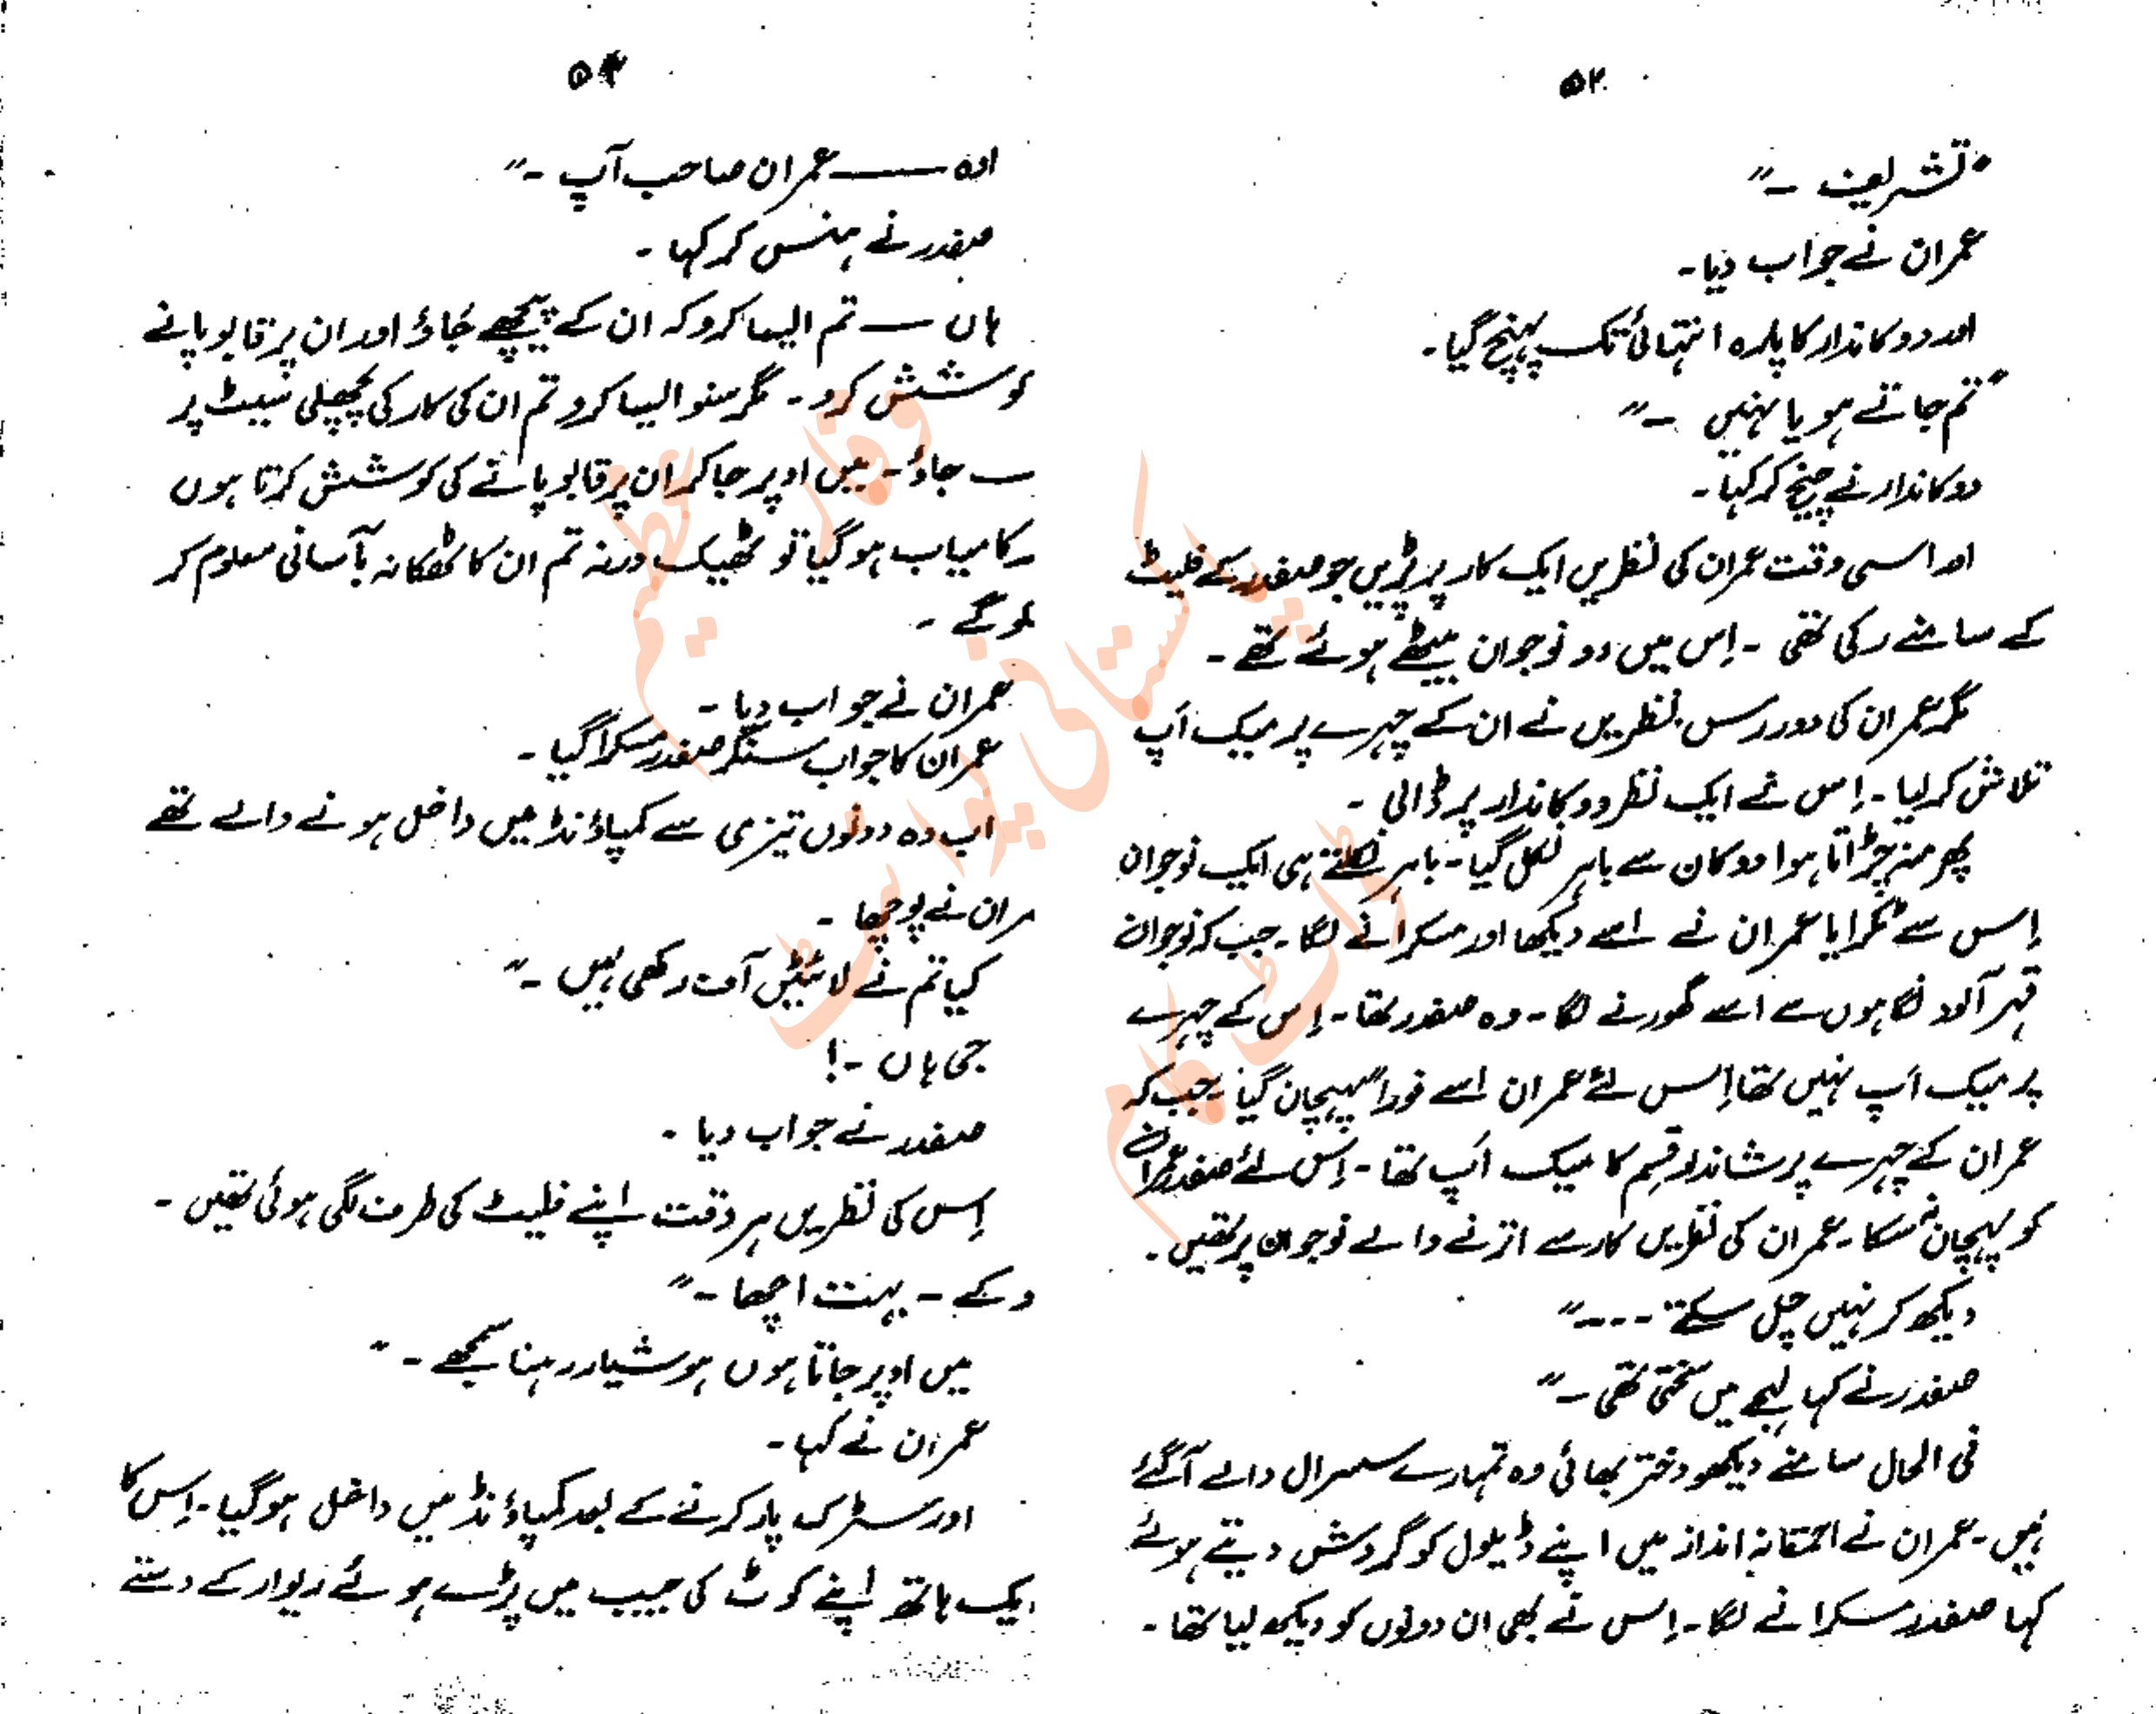 ۵۲
"تشریف ۔"
عمران نے جواب دیا۔
اور دوکاندار کا پارہ انتہائی تک پہنچ گیا۔
"تم جاتے ہو یا نہیں ۔"
دوکاندار نے چیخ کر کہا۔
اور اسی وقت عمران کی نظریں ایک کار پر پڑیں جو صفدر کے فلیٹ
کے سامنے رکی تھی ۔ اِس میں دو نوجوان بیٹھے ہوئے تھے ۔
مگر عمران کی دور رس نظریں نے ان کے چہرے پر میک اَپ
تلاش کر لیا ۔ اِس نے ایک نظر دوکاندار پر ڈالی ۔
پھر منہ چڑاتا ہوا دوکان سے باہر نکل گیا ۔ باہر نکلتے ہی ایک نوجوان
اِس سے ٹکرایا عمران نے اسے دیکھا اور مسکرانے لگا ۔ جب کہ نوجوان
قہر آلود نگاہوں سے اسے گھورنے لگا ۔ وہ صفدر تھا ۔ اِس کے چہرے
پر میک اَپ نہیں تھا اِس لئے عمران اسے فوراً پہچان گیا ۔ جب کہ
عمران کے چہرے پر شاندار قسم کا میک اَپ تھا ۔ اِس لئے صفدر عمران
کو پہچان نہ سکا ۔ عمران کی نظریں کار سے اترنے والے نوجوان پر تھیں ۔
دیکھ کر نہیں چل سکتے ۔۔۔۔"
صفدر نے کہا لہجے میں سختی تھی ۔"
فی الحال سامنے دیکھو دختر بھائی وہ تمہارے سسرال والے آ گئے
ہیں ۔ عمران نے احمقانہ انداز میں اپنے ڈیلول کو گردش دیتے ہوئے
کہا صفدر مسکرانے لگا ۔ اِس نے بھی ان دونوں کو دیکھ لیا تھا ۔
۵۳
اوہ ——— عمران صاحب آپ ۔"
صفدر نے ہنس کر کہا ۔
ہاں — تم ایسا کرو کہ ان کے پیچھے جاؤ اور ان پر قابو پانے
کوشش کرو ۔ مگر سنو ایسا کرو تم ان کی کار کی پچھلی سیٹ پر
جاؤ ۔ میں اوپر جا کر ان پر قابو پانے کی کوشش کرتا ہوں
کامیاب ہو گیا تو ٹھیک ورنہ تم ان کا ٹھکانہ بآسانی معلوم کر
لو گے ۔
عمران نے جواب دیا ۔
عمران کا جواب سنکر صفدر مسکرا گیا ۔
اب وہ دونوں تیزی سے کمپاؤنڈ میں داخل ہونے والے تھے
مران نے پوچھا ۔
کیا تم نے لائیٹیں آف رکھی ہیں ۔"
جی ہاں ۔!
صفدر نے جواب دیا ۔
اِس کی نظریں ہر وقت اپنے فلیٹ کی طرف لگی ہوئی تھیں ۔
وکے ۔ بہت اچھا ۔"
میں اوپر جاتا ہوں ہوشیار رہنا سمجھے ۔"
عمران نے کہا ۔
اور سٹرک پار کرنے کے بعد کمپاؤنڈ میں داخل ہو گیا ۔ اِس کا
یک ہاتھ اپنے کوٹ کی جیب میں پڑے ہوئے ریوالر کے دستے
وقار عظیم
پاکستانی پوائنٹ
ڈاٹ کام